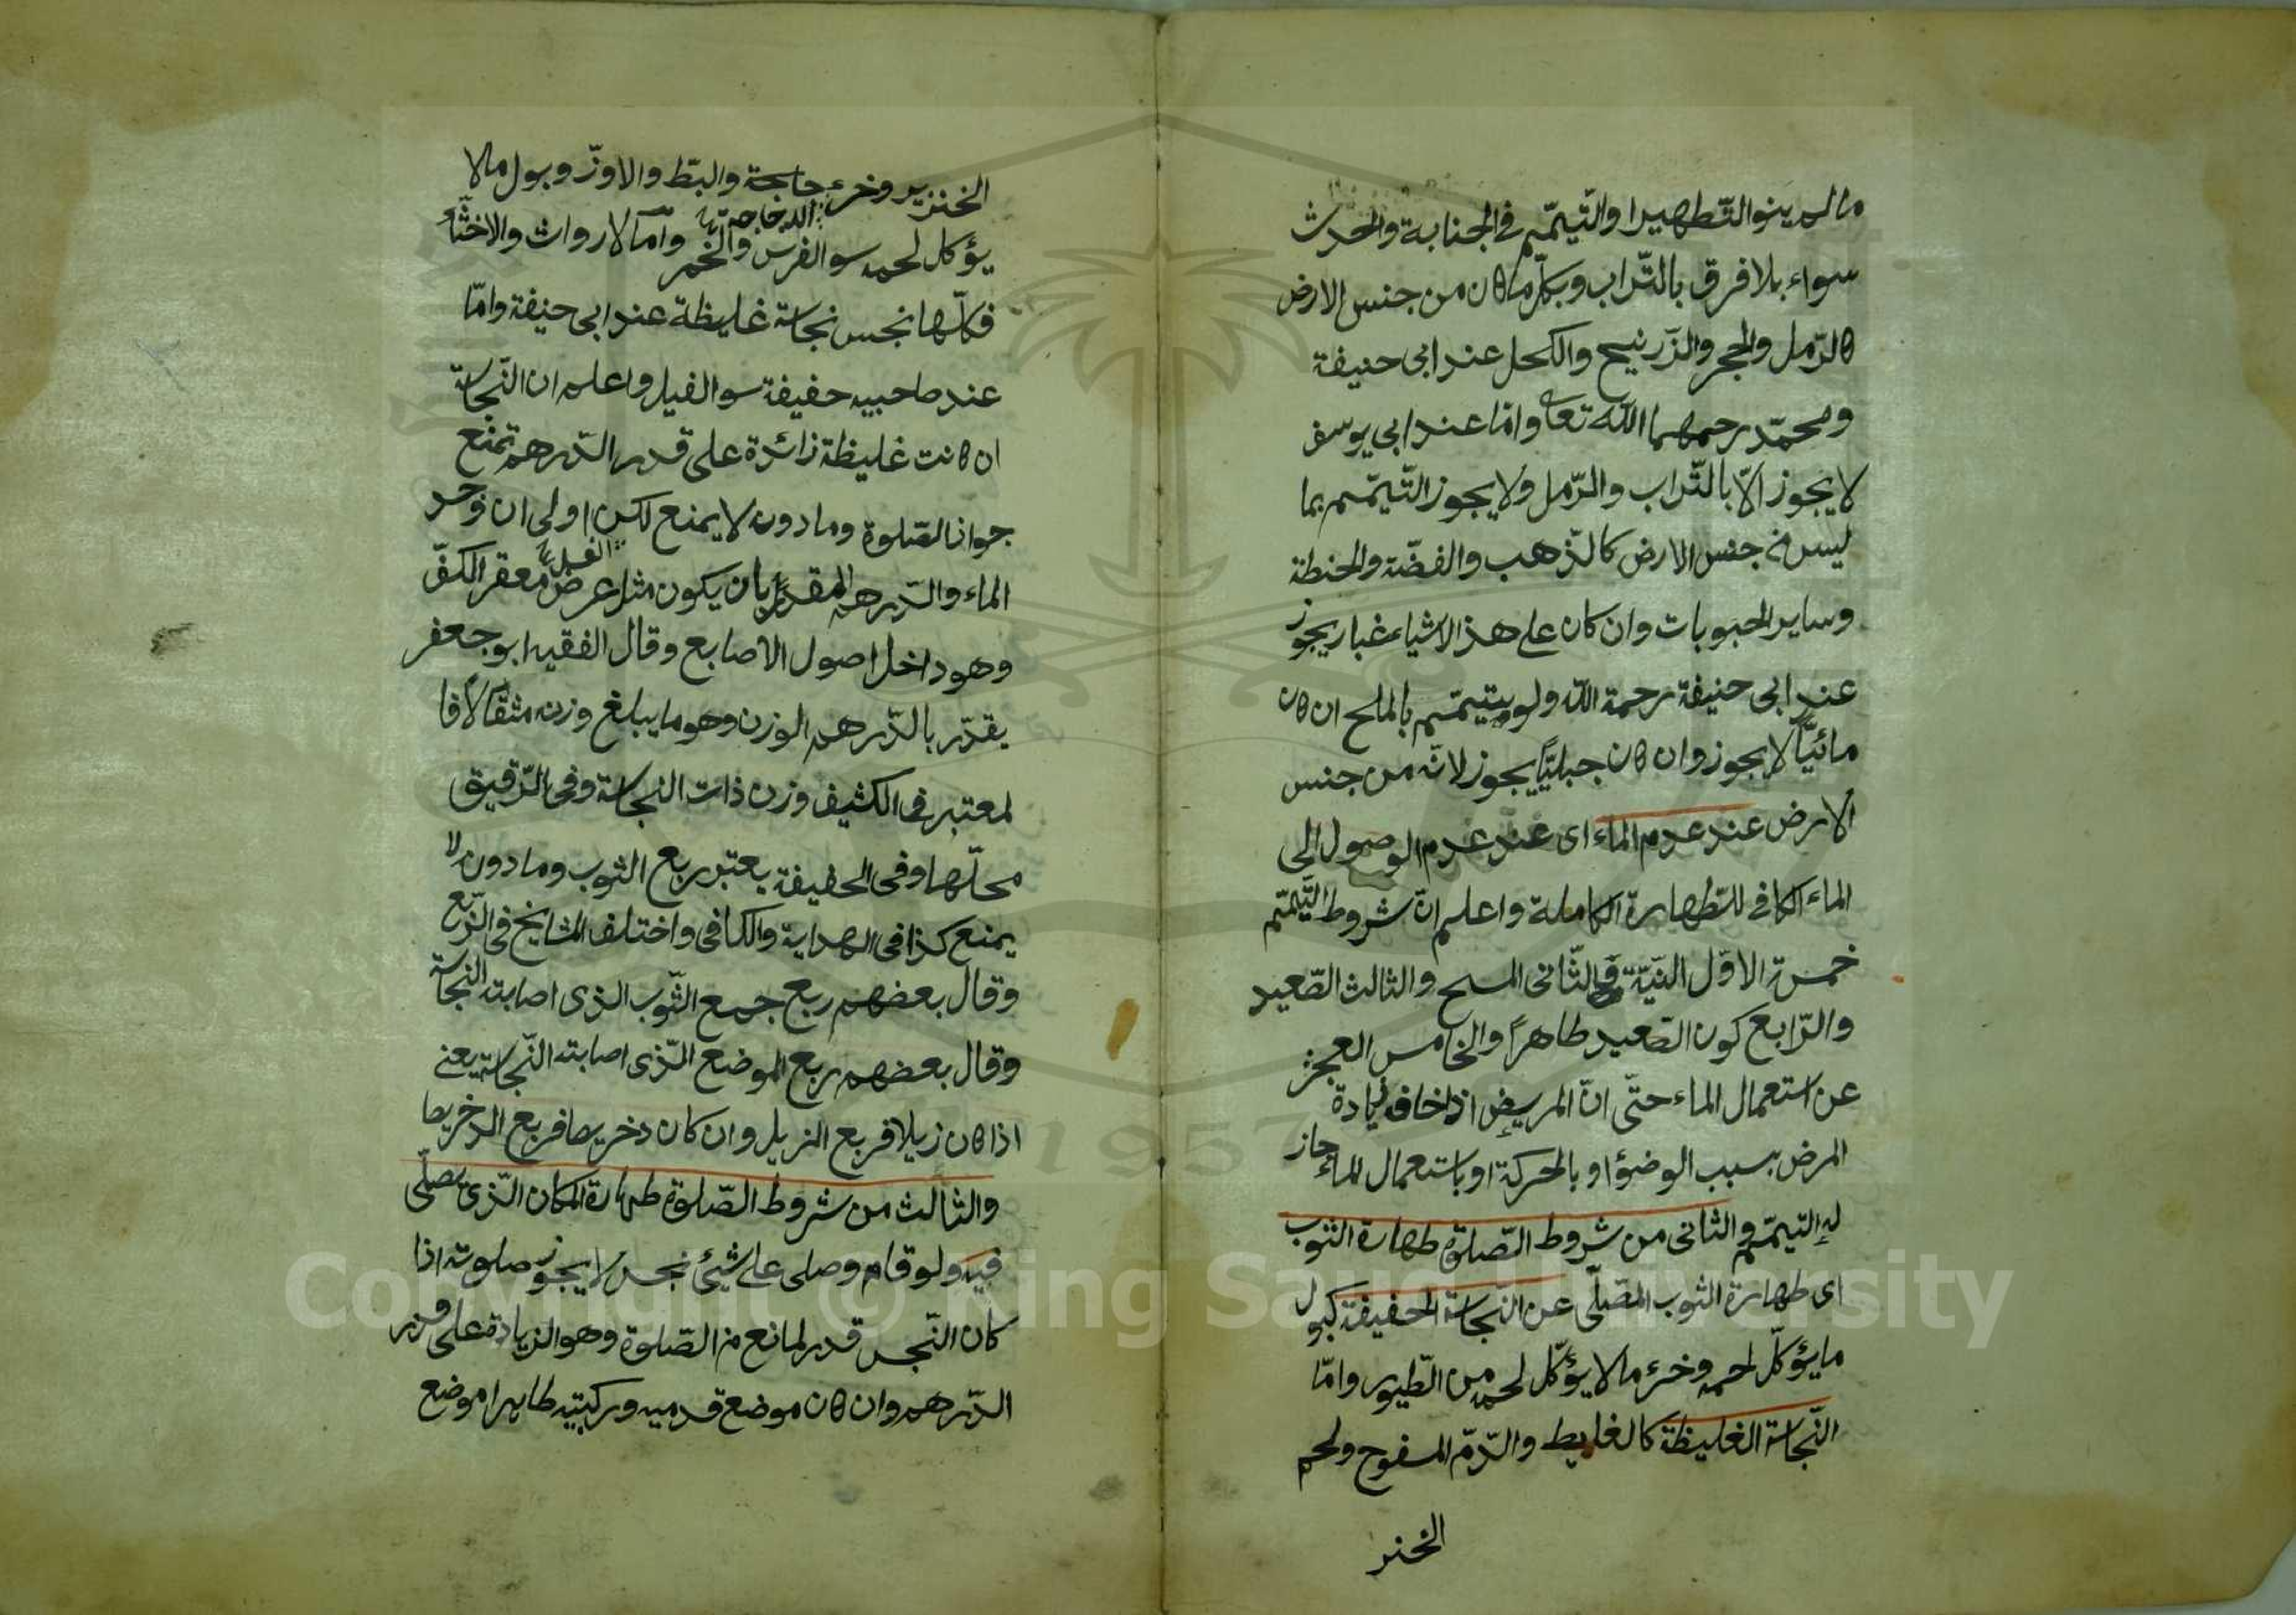 مالم ينو التّطهيرا والتّيمّم فى الجنابة والحدث
سواء بلا فرق بالتّراب وبكلّ ما كان من جنس الارض
كالرّمل والحجر والزّرنيح والكحل عند ابى حنيفة
ومحمّد رحمهما اللّه تعا وامّا عند ابى يوسف
لا يجوز الّا بالتّراب والرّمل ولا يجوز التّيمّم بما
ليس من جنس الارض كالذّهب والفضّة والحنطة
وساير الحبوبات وان كان على هذ الاشياء غبار يجوز
عند ابى حنيفة رحمة اللّه ولو يتيمّم بالملح ان كان
مائيّاً لا يجوز وان كان جبليّاً يجوز لانّه من جنس
الارض عند عدم الماء اى عند عدم الوصول الى
الماء الكافى للتّطهارة الكاملة واعلم انّ شروط التّيمّم
خمسة الاوّل النيّة والثّانى المسح والثالث الصّعيد
والرّابع كون الصّعيد طاهراً والخامس العجز
عن استعمال الماء حتّى انّ المريض اذا خاف زيادة
المرض بسبب الوضؤ او بالحركة او باستعمال الماء جاز
له التيمّم والثانى من شروط الصّلوة طهارة الثوب
اى طهارة الثوب المصّلّى عن النّجاسة الخفيفة كبول
ما يؤكلّ لحمه وخرء ما لا يؤكّل لحمه من الطّيور وامّا
النّجاسة الغليظة كالغايط والدّم المسفوح ولحم
الخنر
الخنزير وخرء جاجة والبطّ والاوزّ وبول مالا
الدجاجة
يؤكل لحمه سو الفرس والخمر وامّا الارواث والاخثاء
فكلّها نجس نجاسة غليظة عند ابى حنيفة وامّا
عند صاحبيه خفيفة سو الفيل واعلم ان النّجاسة
ان كانت غليظة زائدة على قدر الدّرهم تمنع
جوانا الصّلوة وما دون لا يمنع لكن اولى ان وجد
الغسل
الماء والدّرهم المقدّر بان يكون مثل عرض معقر الكفّ
وهو داخل اصول الاصابع وقال الفقيه ابو جعفر
يقدّر بالدّرهم الوزن وهو ما يبلغ وزنه مثقالاً فا
لمعتبر فى الكثيف وزن ذات النجاسة وفى الرّقيق
محلّها وفى الخفيفة يعتبر ربع الثوب وما دون لا
يمنع كذا فى الهداية والكافى واختلف المشايخ فى الرّبع
وقال بعضهم ربع جميع الثّوب الذى اصابته النجاسة
وقال بعضهم ربع الموضع الذّى اصابته النّجاسة يعنى
اذا كان زيلا فربع الزيل وان كان دخريصا فربع الدخريصا
والثالث من شروط الصّلوة طهارة المكان الذّى يصلّى
فيه ولو قام وصلى على شيئ نجس لا يجوز صلوته اذا
كان النّجس قدر لمانع من الصّلوة وهو الزيادة على قدر
الدّرهم وان كان موضع قدميه وركبتيه طاهرا موضع
Copyright © King Saud University
1957